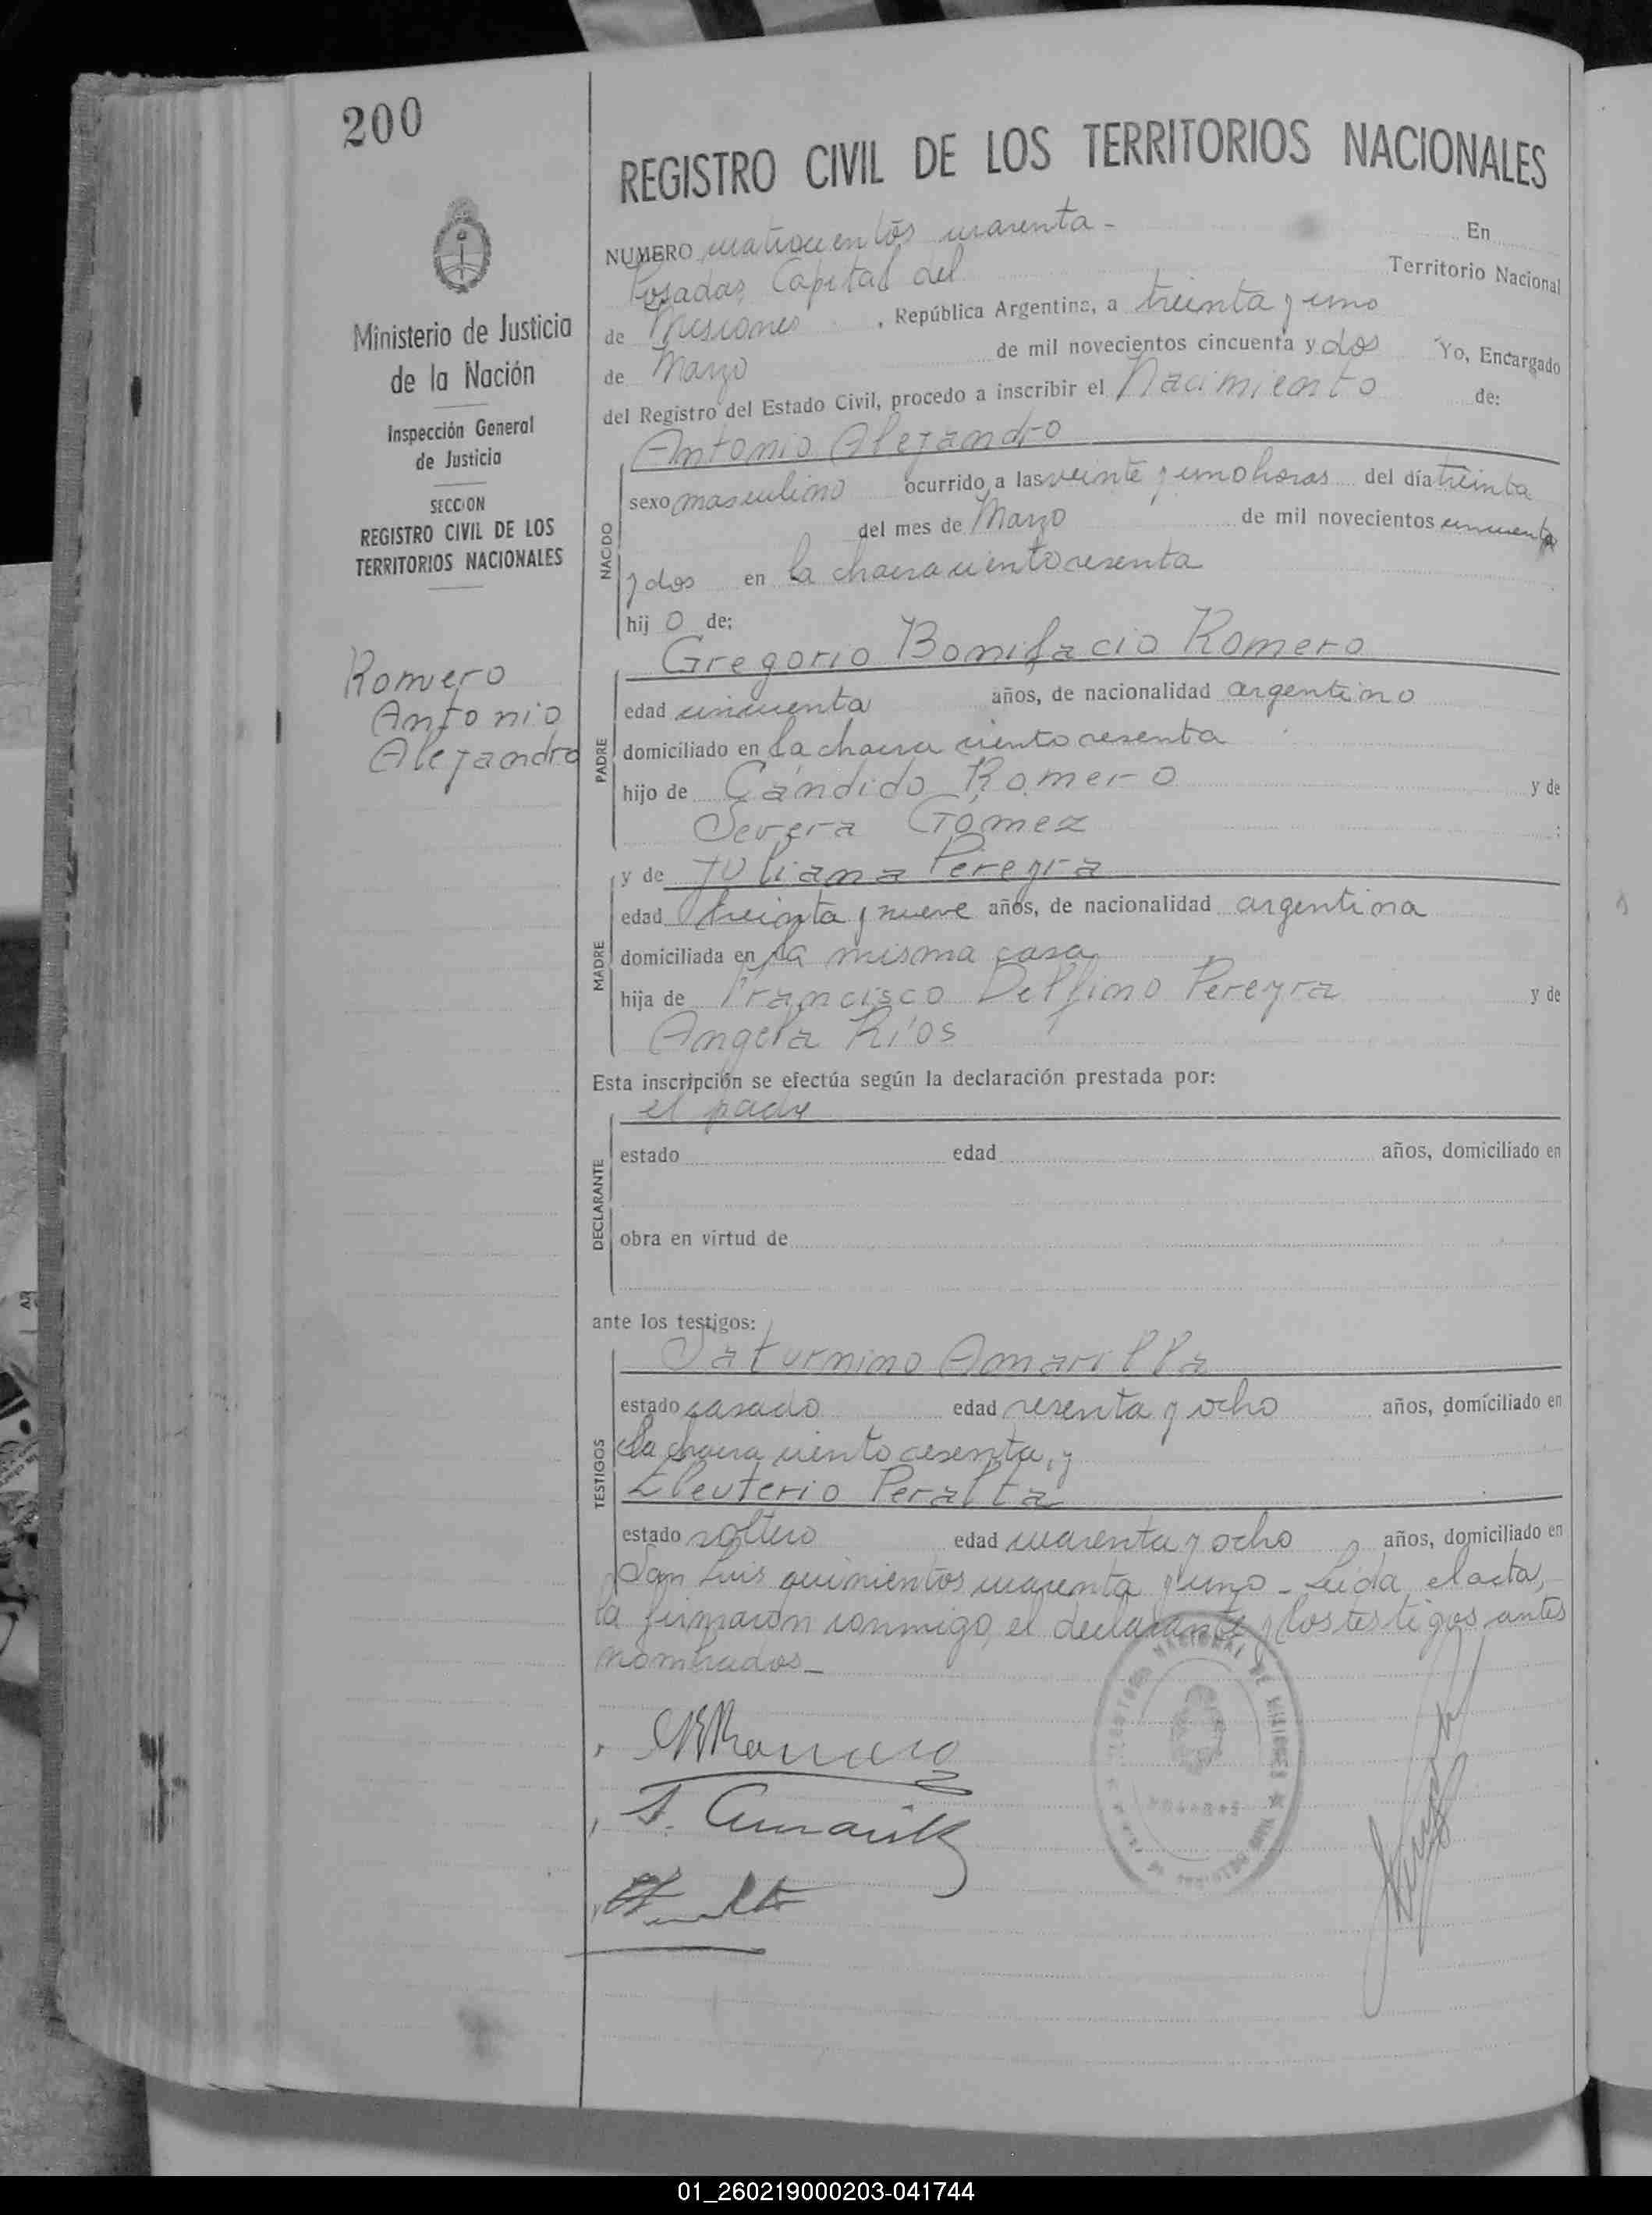 200
REGISTRO CIVIL DE LOS TERRITORIOS NACIONALES
Ministerio de Justicia
de la Nación
Inspección General
de Justicia
SECCION
REGISTRO CIVIL DE LOS
TERRITORIOS NACIONALES
Romero
Antonio
Alejandro
NUMERO cuatrocientos cuarenta - En
Posadas, Capital del Territorio Nacional
de Misiones, República Argentina, a treinta y uno
de Marzo de mil novecientos cincuenta y dos Yo, Encargado
del Registro del Estado Civil, procedo a inscribir el Nacimiento de:
NACIDO
Antonio Alejandro
sexo masculino ocurrido a las veinte y uno horas del día treinta
del mes de Marzo de mil novecientos cincuenta
y dos en la chacra ciento sesenta
hij o de:
PADRE
Gregorio Bonifacio Romero
edad cincuenta años, de nacionalidad argentino
domiciliado en la chacra ciento sesenta
hijo de Cándido Romero y de
Severa Gómez ;
MADRE
y de Juliana Pereyra
edad treinta y nueve años, de nacionalidad argentina
domiciliada en la misma casa
hija de Francisco Delfino Pereyra y de
Angela Ríos
Esta inscripción se efectúa según la declaración prestada por:
DECLARANTE
el padre
estado edad años, domiciliado en
obra en virtud de
ante los testigos:
TESTIGOS
Saturnino Amarilla
estado casado edad sesenta y ocho años, domiciliado en
la chacra ciento sesenta, y
Eleuterio Peralta
estado soltero edad cuarenta y ocho años, domiciliado en
San Luis quinientos cuarenta y uno - Leída el acta,
la firmaron conmigo, el declarante y los testigos antes
nombrados -
S. Amarilla
01_260219000203-041744